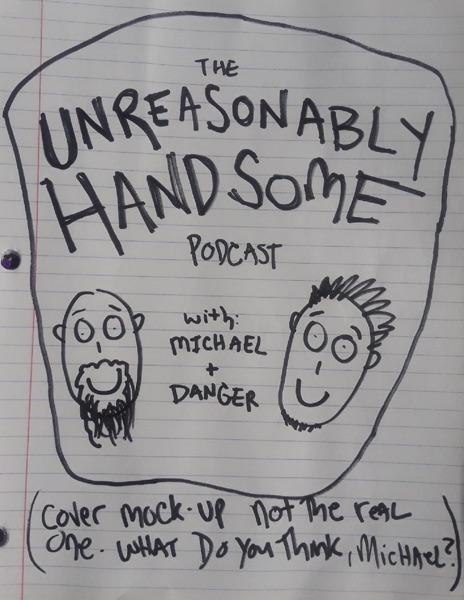 THE
UNREASONABLY
HANDSOME
PODCAST
with:
MICHAEL
+
DANGER
(Cover mock-up not the real
one. WHAT Do You Think, MicHael?)